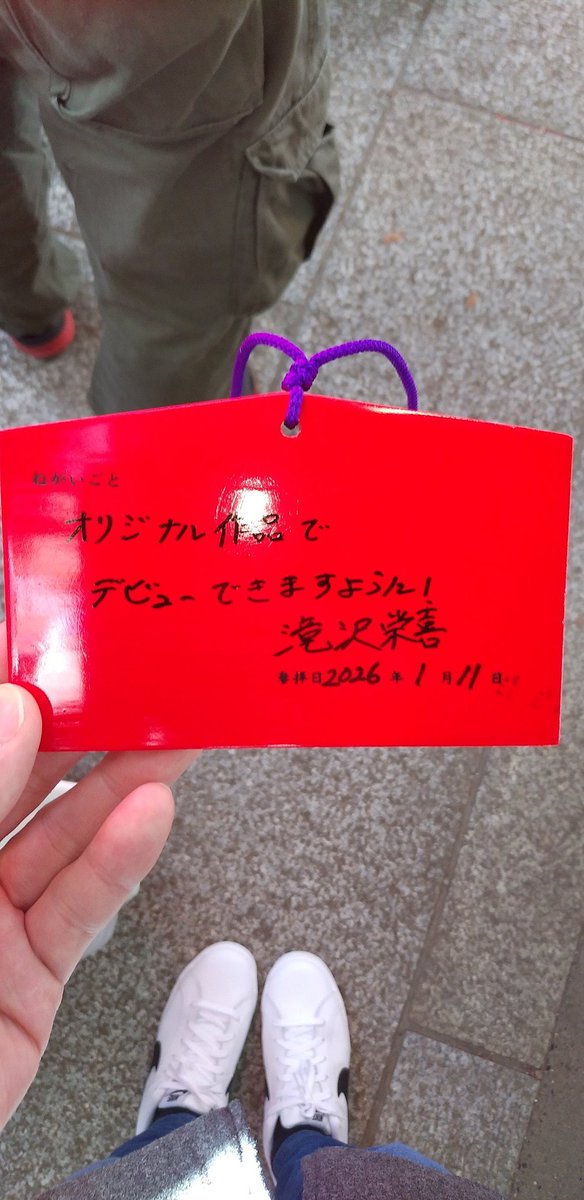 ねがいごと
オリジナル作品で
デビューできますように!
滝沢栄喜
参拝日2026年1月11日